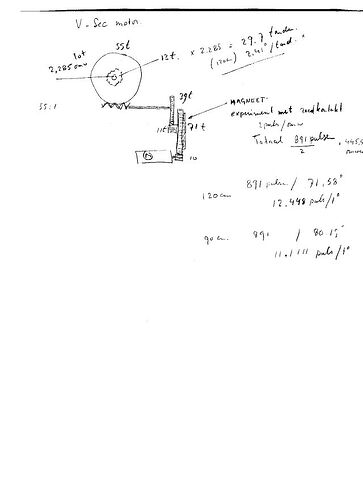 V - Sec motor.
55t
tot
2,285 omw
12t.
× 2.285 = 29.7 tanden.
(120cm) 2,41°/tand.
55:1
39t
MAGNEET.
experiment met reedkontakt
2 puls/omw
11t
71t
Totaal 891 pulse
2
445,5
10
120 cm 891 pulse / 71,58°
12,448 puls/1°
90 cm. 891 / 80.19°
11.111 puls/1°